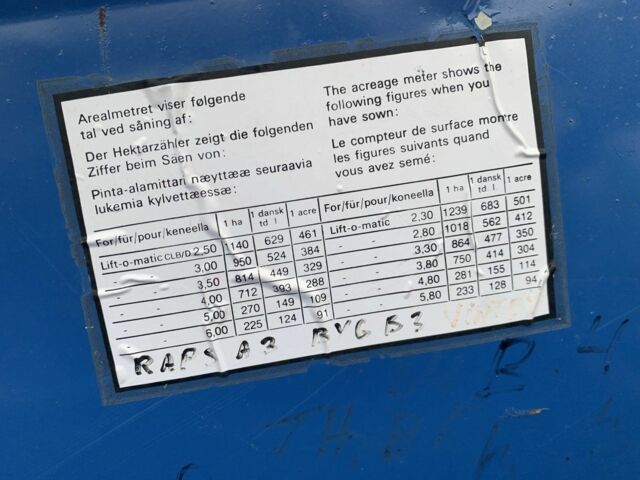 Arealmetret viser følgende
tal ved såning af:
Der Hektarzähler zeigt die folgenden
Ziffer beim Säen von:
Pinta-alamittari næyttææ seuraavia
lukemia kylvettæessæ:
The acreage meter shows the
following figures when you
have sown:
Le compteur de surface montre
les figures suivants quand
vous avez semé:
For/für/pour/keneella 1 ha 1 dansk td. l 1 acre
Lift-o-matic CLB/D 2,50 1140 629 461
- - 3,00 950 524 384
- - 3,50 814 449 329
- - 4,00 712 393 288
- - 5,00 270 149 109
- - 6,00 225 124 91
For/für/pour/koneella 1 ha 1 dansk td. l 1 acre
Lift-o-matic 2,30 1239 683 501
- - 2,80 1018 562 412
- - 3,30 864 477 350
- - 3,80 750 414 304
- - 4,80 281 155 114
- - 5,80 233 128 94
RAPS A3 RVG B3
B 4